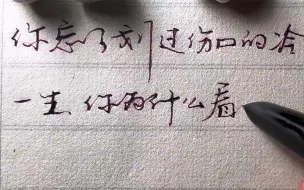 你忘了划过伤口的冷
一生、你为什么看